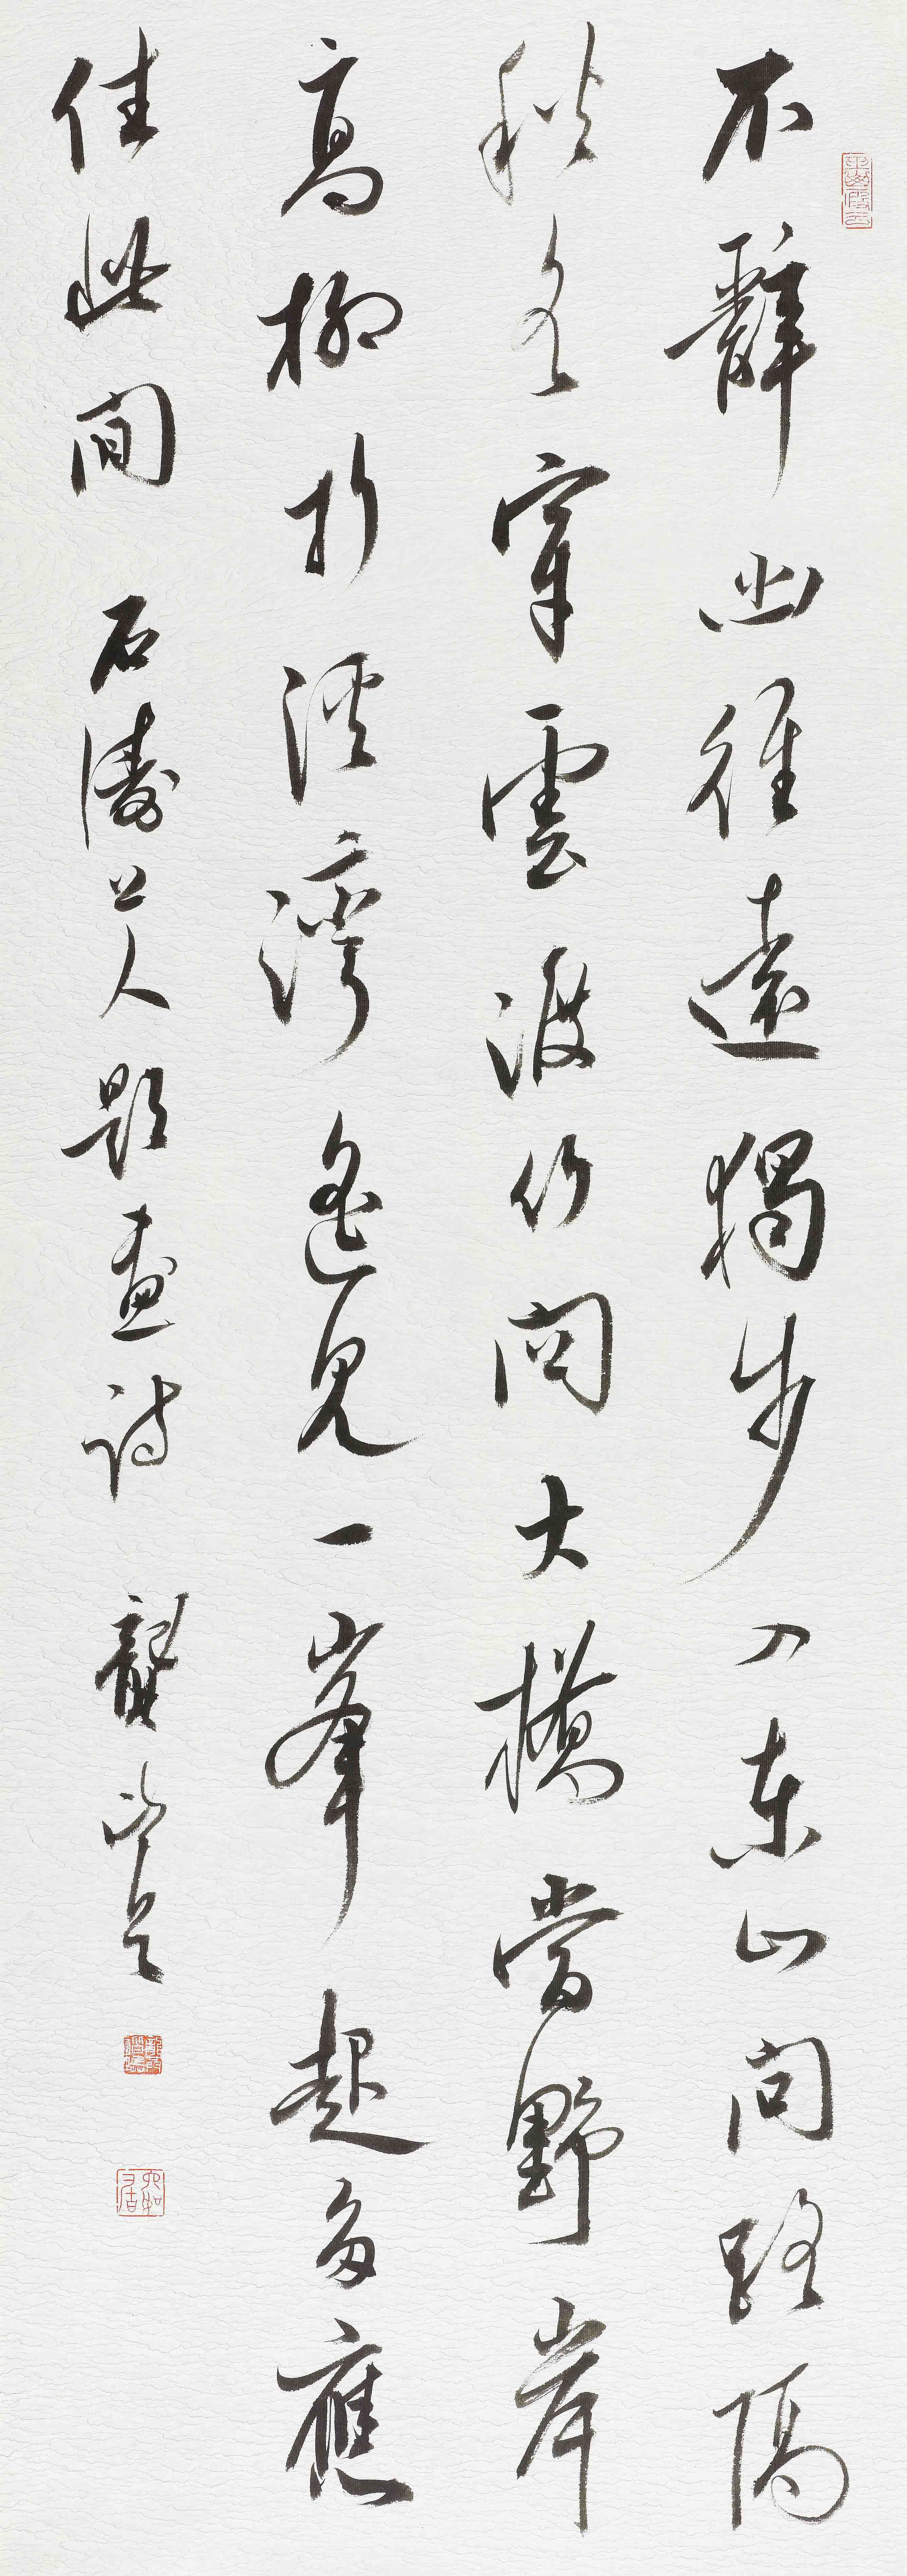 不辭幽徑遠獨步入東山問路隔
秋水穿雲渡竹關大橋當野岸
高柳折溪灣遙見一峯起多應
住此間 石濤上人題畫詩 龔